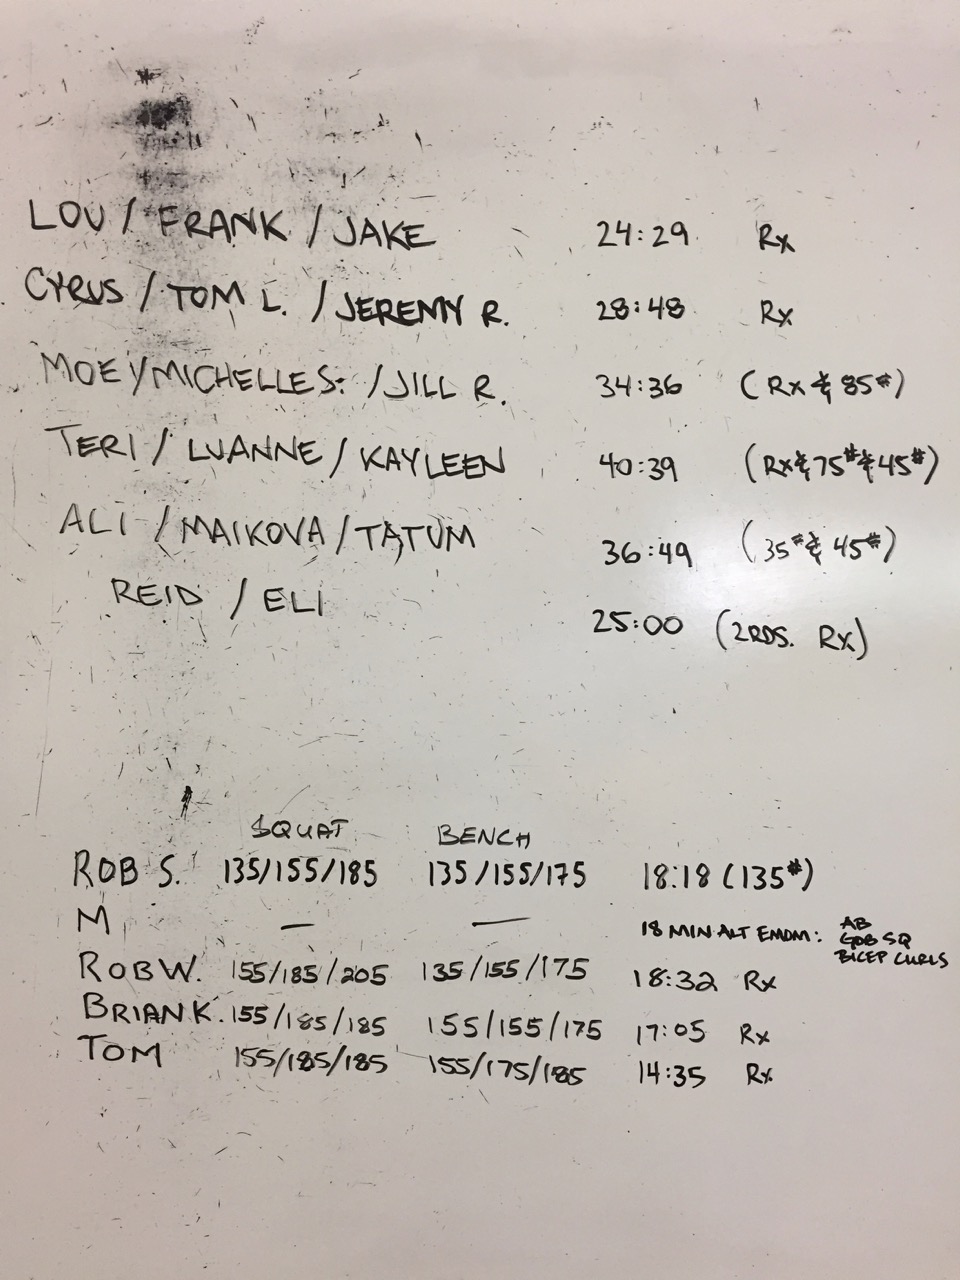 LOU / FRANK / JAKE 24:29 Rx
CYRUS / TOM L. / JEREMY R. 28:48 Rx
MOE / MICHELLE S. / JILL R. 34:36 (Rx & 85#)
TERI / LUANNE / KAYLEEN 40:39 (Rx & 75# & 45#)
ALI / MAIKOVA / TATUM 36:49 (35# & 45#)
REID / ELI 25:00 (2RDS. Rx)
SQUAT BENCH
ROB S. 135/155/185 135/155/175 18:18 (135#)
M — — 18 MIN ALT EMOM: AB
GOB SQ
BICEP CURLS
ROB W. 155/185/205 135/155/175 18:32 Rx
BRIAN K. 155/185/185 155/155/175 17:05 Rx
TOM 155/185/185 155/175/185 14:35 Rx